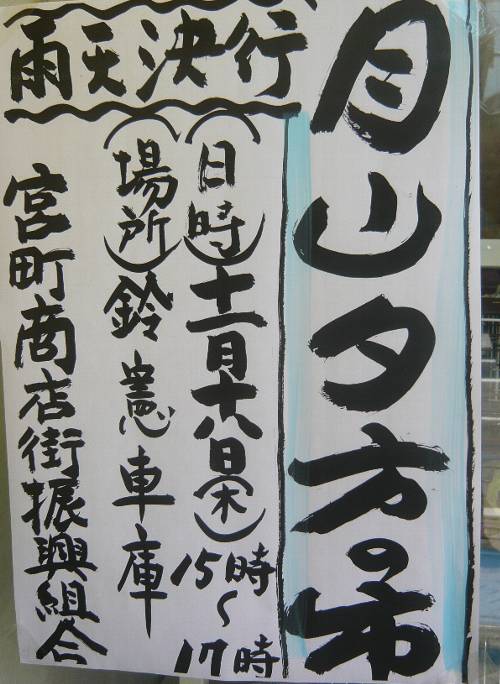 月山夕方の市
雨天決行
(日時)十一月十八日(木)
15時～17時
(場所)鈴憲車庫
宮町商店街振興組合